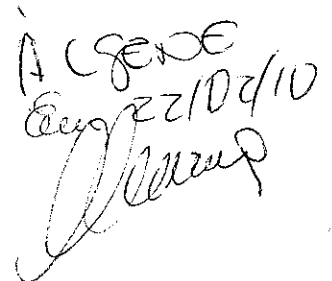 À CGENE
Em 22/02/10